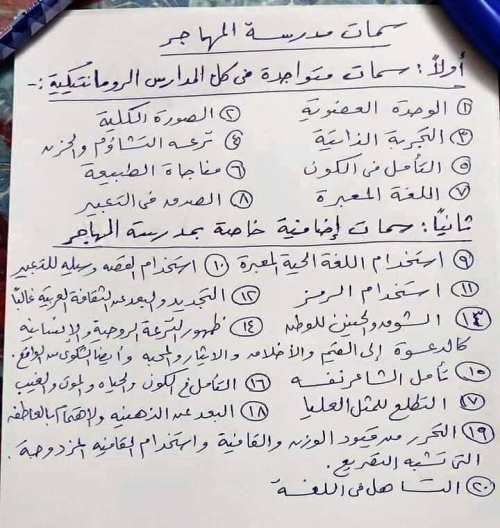 سمات مدرسة المهاجر
أولاً: سمات متواجدة فى كل المدارس الرومانتيكية :-
① الوحدة العضوية ② الصورة الكلية
③ التجربة الذاتية ④ نزعه التشاؤم والحزن
⑤ التأمل فى الكون ⑥ مناجاة الطبيعة
⑦ اللغة المعبرة ⑧ الصدق فى التعبير
ثانياً: سمات إضافية خاصة بمدرسة المهاجر
⑨ استخدام اللغة الحية المعبرة ⑩ استخدام القصه وسيله للتعبير
⑪ استخدام الرمز ⑫ التجديد والبعد عن الثقافة العربية غالباً
⑬ الشوق والحنين للوطن ⑭ ظهور النزعة الروحية والإنسانية
كالدعوة إلى القيم والأخلاق والايثار والمحبه وايضا الشكوى من الواقع.
⑮ تأمل الشاعر نفسه ⑯ التأمل فى الكون والحياه والموت والغيب
⑰ التطلع للمثل العليا ⑱ البعد عن الذهنيه والاهتمام بالعاطفه
⑲ التحرر من قيود الوزن والقافية واستخدام القافيه المزدوجة.
التى تشبه التصريع.
⑳ التساهل فى اللغة